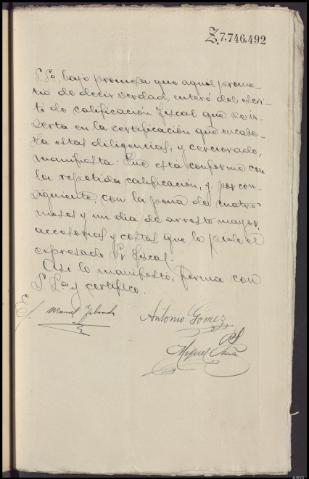 Z.7.746.492
S Sª bajo promesa que aquel prome-
tió de decir verdad, enteró del escri-
to de calificación fiscal que se in-
serta en la certificación que encabe-
za estas diligencias, y cerciorado,
manifiesta: Que esta conforme con
la repetida calificación, y por con-
siguiente, con la pena de cuatro
meses y un dia de arresto mayor,
accesorias y costas que le pide el
expresado Sr Fiscal.
Asi lo manifesto, firma con
S Sª y certifico.
Manuel
Antonio Gomez
Miguel